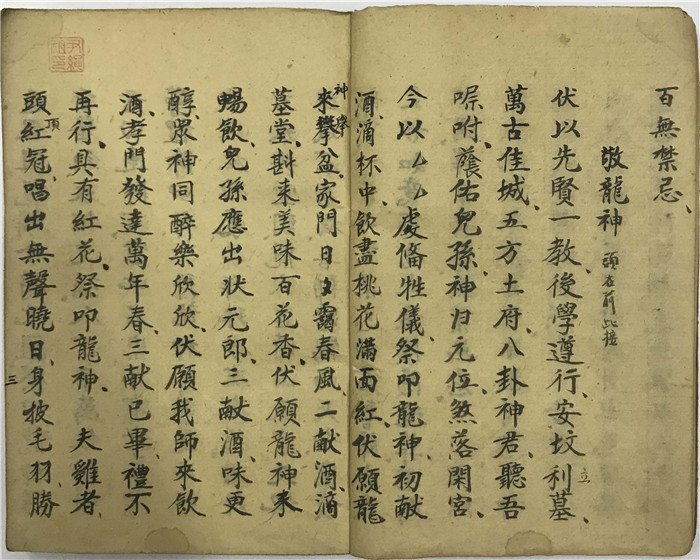 百無禁忌、
敬龍神 頭在前此接
伏以先賢一教、後學遵行、安坟利墓、
立
萬古佳城、五方土府、八卦神君、聽吾
𠹌咐、蔭佑兒孫、神归元位、煞落閑宮、
今以厶厶處俻牲儀、祭叩龍神、初献
酒、滴杯中、飲盡桃花滿面紅、伏願龍
神
來攀盆、家門日日靄春風、二献酒、滴
墓堂、斟来美味百花香、伏願龍神来
暢飲、兒孫應出状元郎、三献酒、味更
醇、眾神同醉樂欣欣、伏願我師來飲
酒、孝門發達萬年春、三献已畢、禮不
再行、具有紅花、祭叩龍神、夫雞者、
頂
頭紅冠、唱出無聲曉日、身披毛羽、勝
三